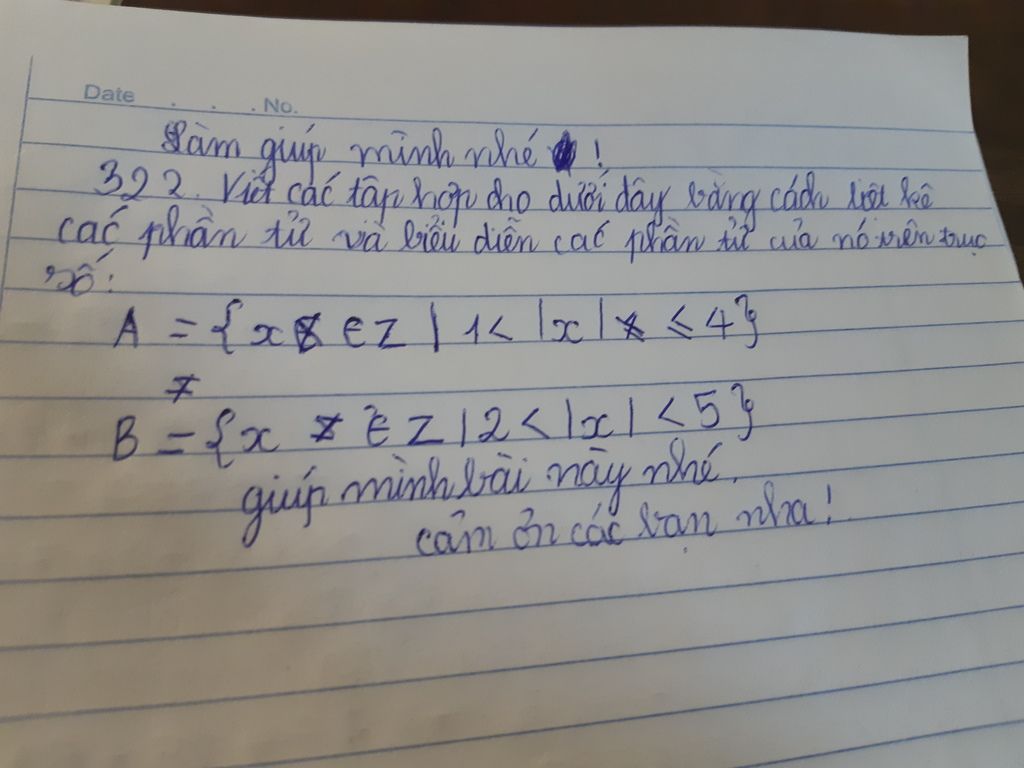 Date . . . No.
Làm giúp mình nhé !
322. Viết các tập hợp cho dưới đây bằng cách liệt kê
các phần tử và biểu diễn các phần tử của nó trên trục
số:
A = {x ∈ Z | 1 < |x| ≤ 4}
B = {x ∈ Z | 2 < |x| < 5}
giúp mình bài này nhé.
cảm ơn các bạn nha!